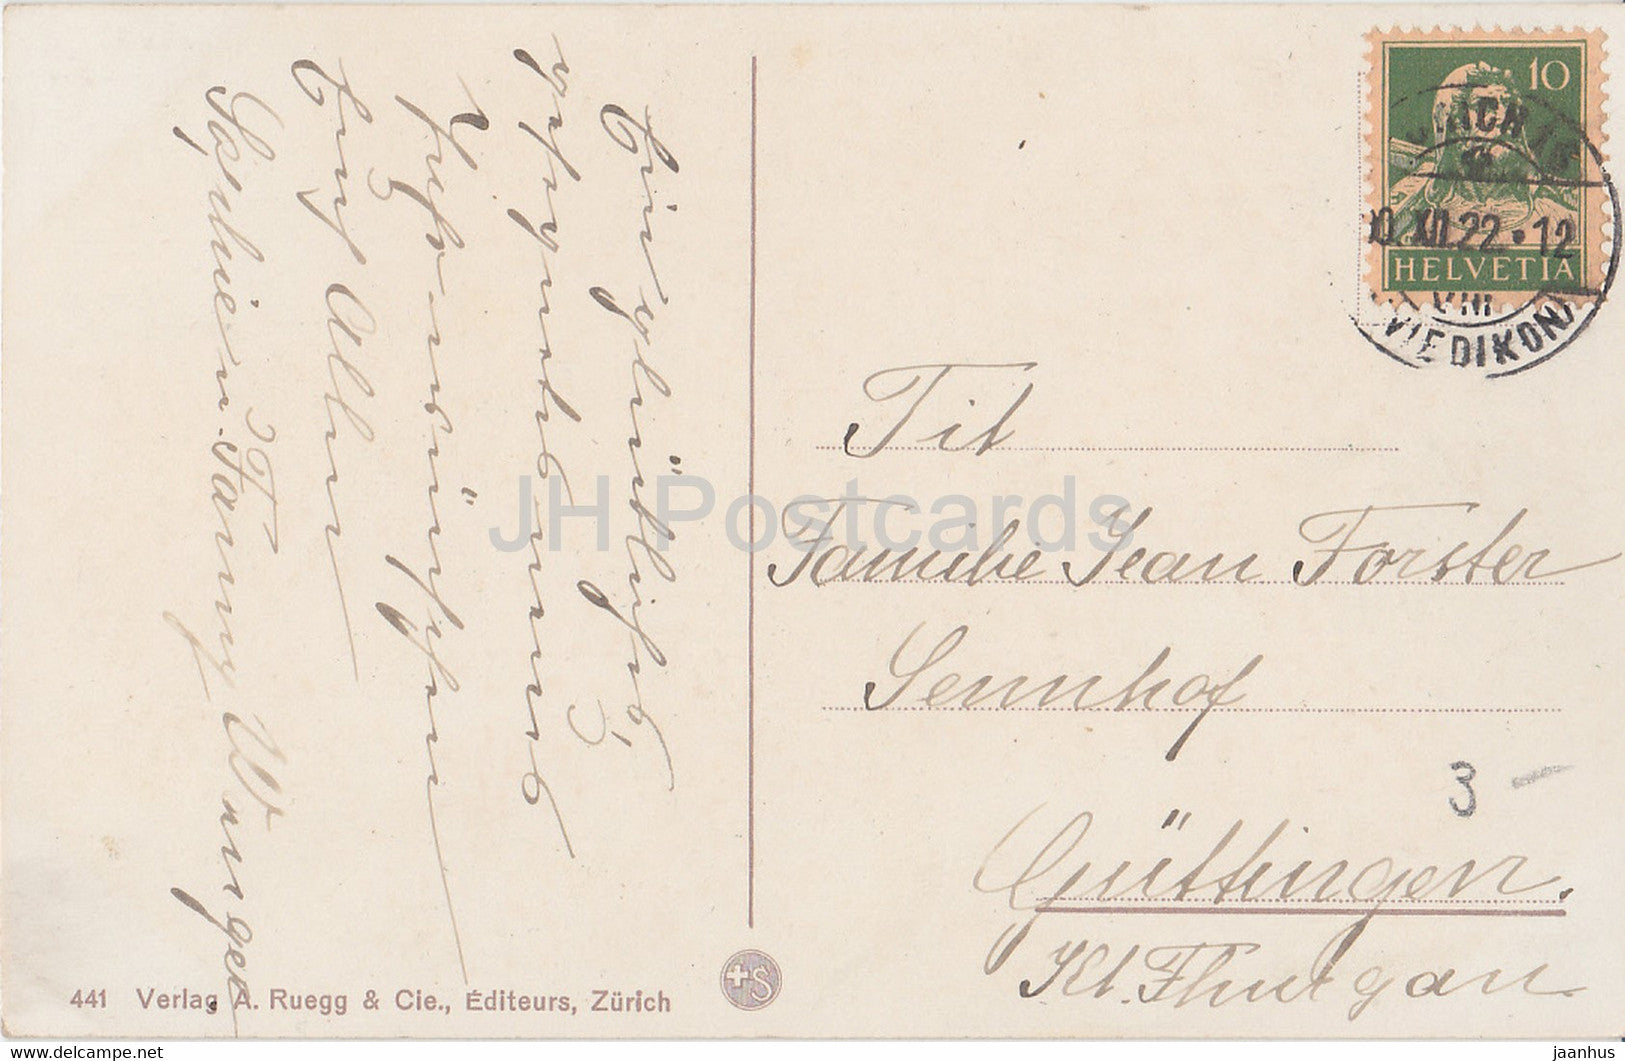 Ein glückliches,
gesegnetes neues
Jahr wünschen
Euch Allen
Sophie u. Fanny Wanger
10
HELVETIA
XII.22.12
VIII
WIEDIKON
Tit
Familie Jean Forster
Sennhof
3 –
Güttingen.
Kt. Thurgau
441 Verlag A. Ruegg & Cie., Éditeurs, Zürich
+S
JH Postcards
www.delcampe.net
jaanhus